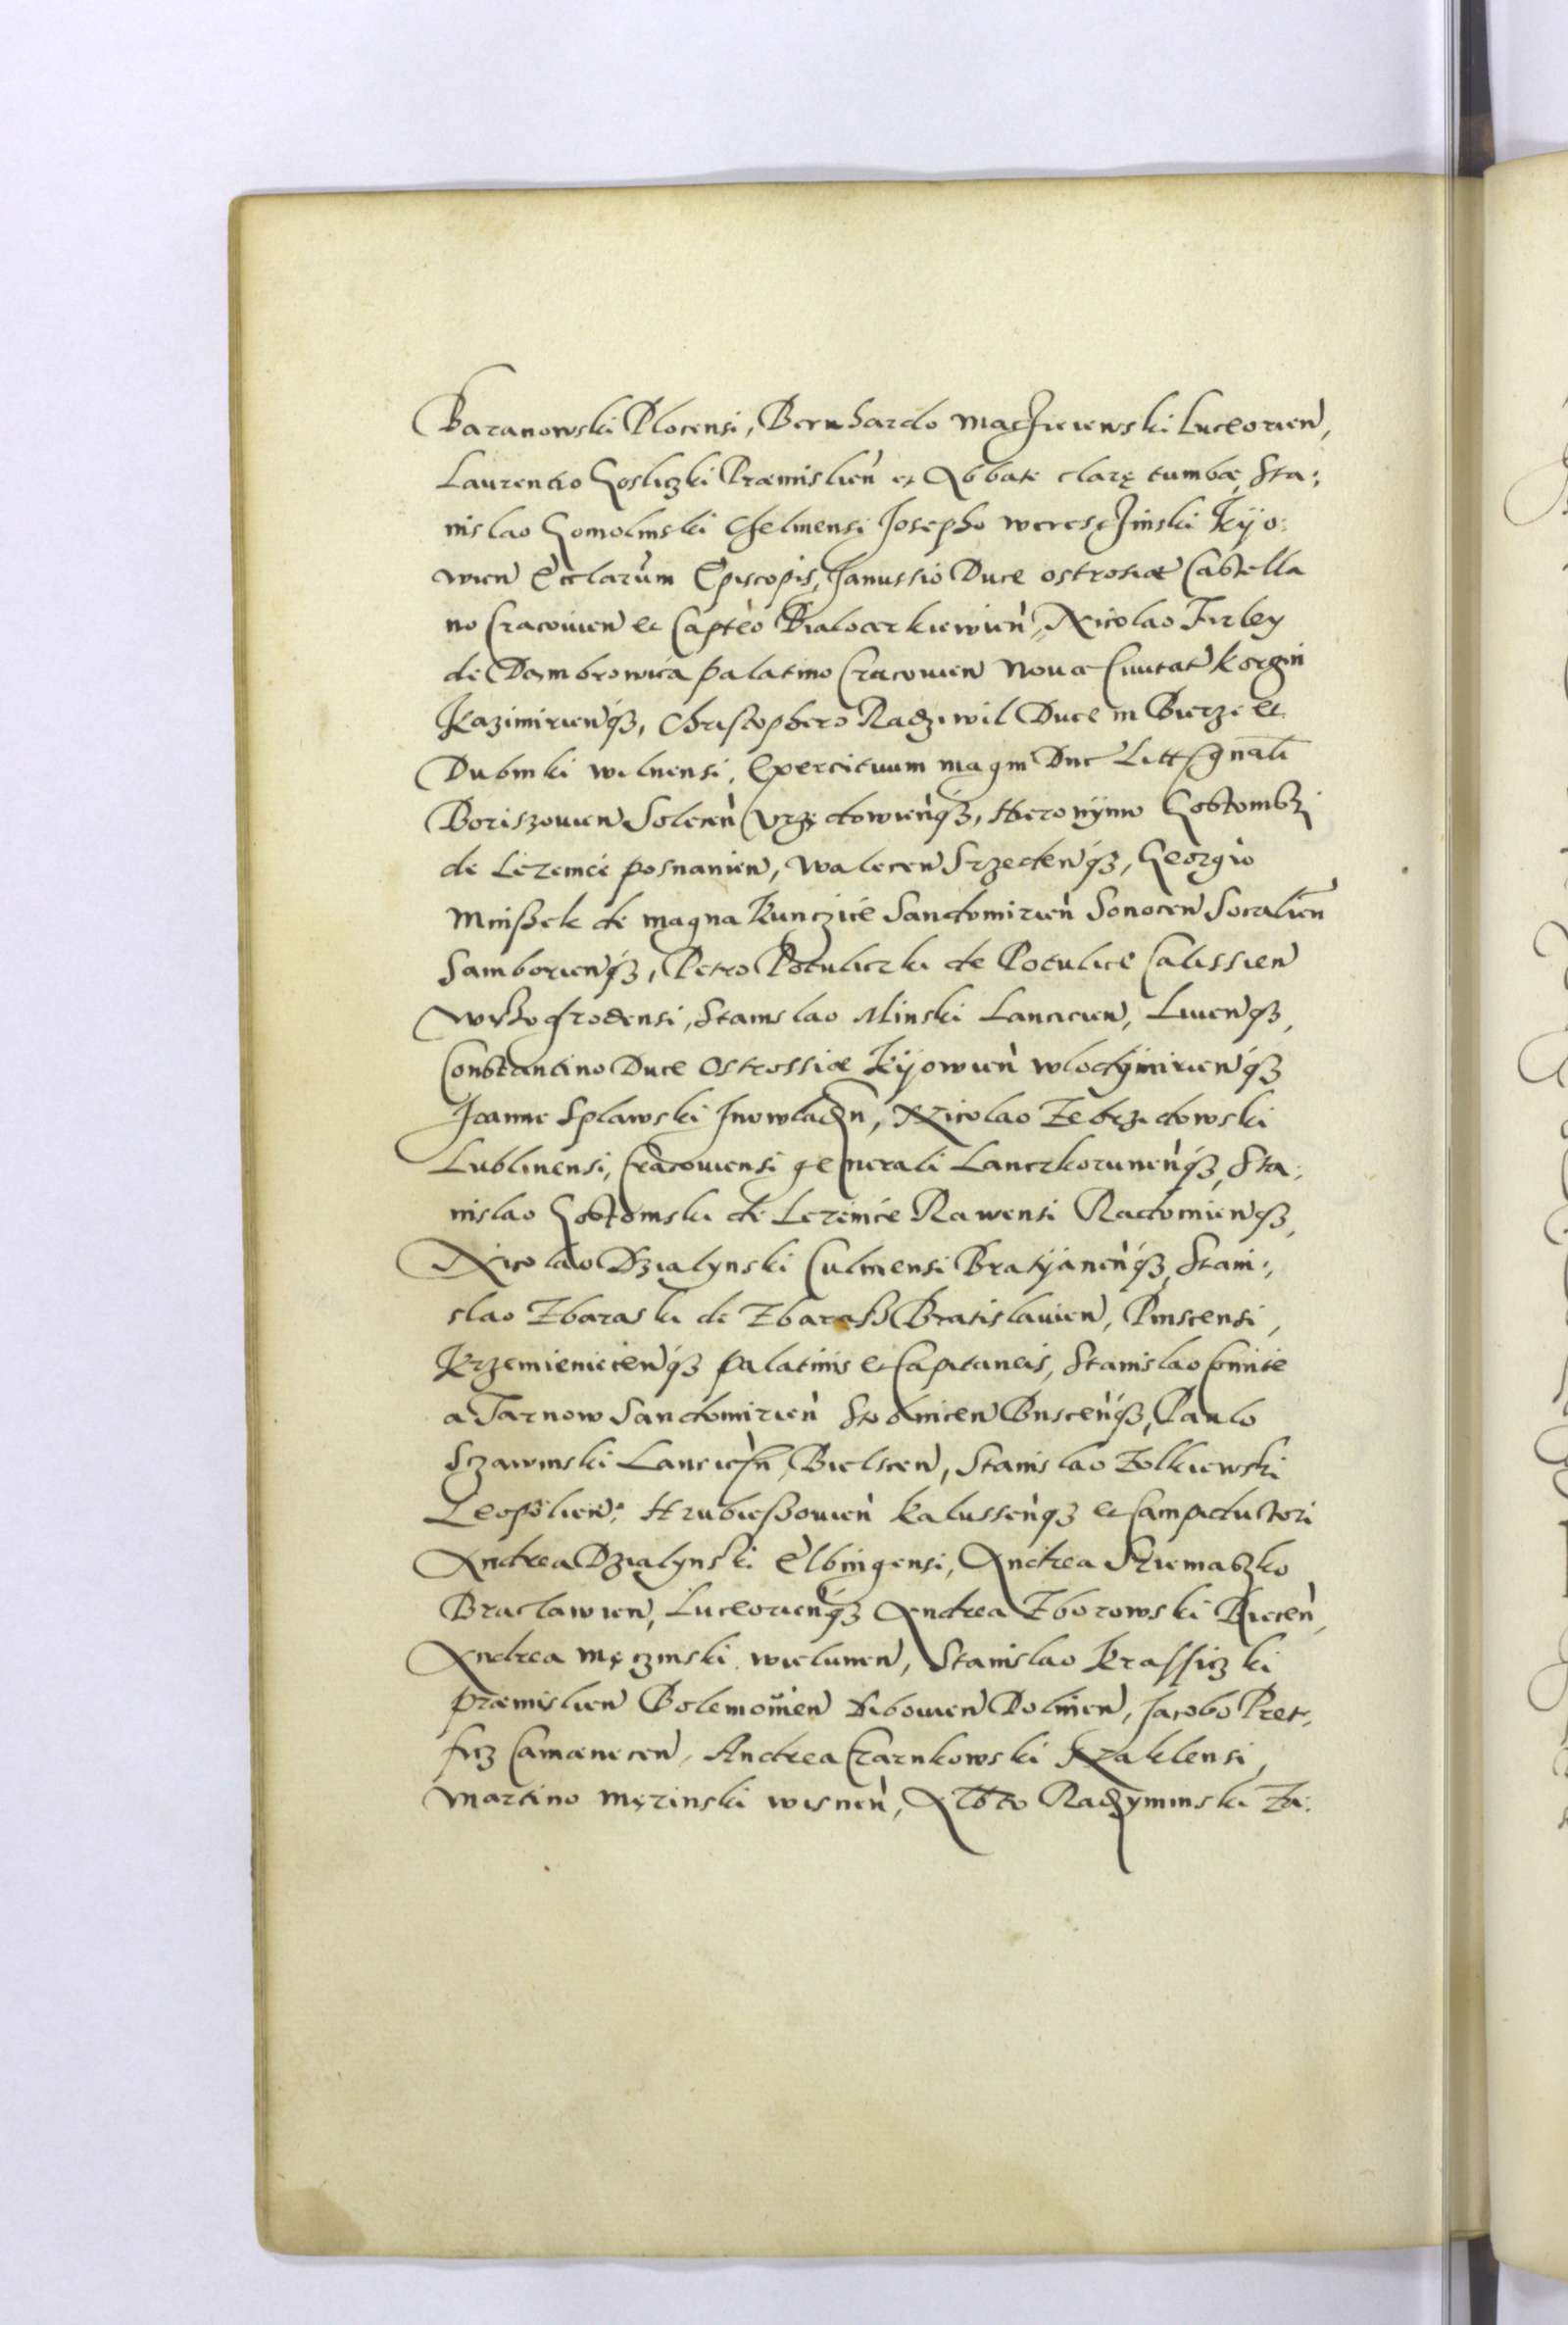 Baranowski Plocensi, Bernhardo Macziewski Luceorien,
Laurentio Gosliczki Præmislien et Abbate claræ tumbæ, Sta:
nislao Gomolinski Chelmensi Josepho Weresczinski Kijo:
wien Ecclarum Episcopis, Janussio Duce Ostrosiæ Castella
no Cracovien et Capteo Bialocerkiewien, Nicolao Firley
de Dambrowica palatino Cracovien Novæ Civitat Korgin
Kazimirienq3, Christophero Radziwil Duce in Bierze et
Dubinki Wilnensi, Exercituum magni Duc Litt gnali
Boriszovien Solecen Urzędowienq3, Hieronymo Gostomski
de Lezenice posnanien, Walecen Srzedenq3, Georgio
Mnißek de magna Kunczice Sandomirien Sonocen Socalien
Samborienq3, Petro Potuliczki de Potulice Calissien
Wyschogrodensi, Stanislao Minski Lancicien, Livenq3,
Constantino Duce Ostrossiæ Kijowien Wlodijmirienq3
Joanne Splawski Inowladn, Nicolao Zebrzidowski
Lublinensi, Cracoviensi generali Lanczkorunenq3, Sta:
nislao Gostomski de Lezenice Rawensi Radomienq3,
Nicolao Dzialynski Culmensi Bratijanenq3, Stani:
slao Zbaraski de Zbaraß Bratislavien, Pinscensi,
Krzemieniecenq3 palatinis et Capitaneis, Stanislao Comite
a Tarnow Sandomirien Stobnicen Buscenq3, Paulo
Sczawinski Lancicn, Bielscen, Stanislao Zolkiewski
Leopolien: Hrubießovien Kalussenq3 et Campductori
Andrea Dzialynski Elbingensi, Andrea
Braclawien, Luceorienq3 Andrea Zborowski Biecen,
Andrea Męczinski Wielunen, Stanislao Krassiczki
præmislien Bolemowen Libovien Dolinen, Jacobo Pret:
ficz Camænecen, Andrea Czarnkowski Nzaklensi,
Martino Męzinski Wisnen, Albto Radzyminski Za: